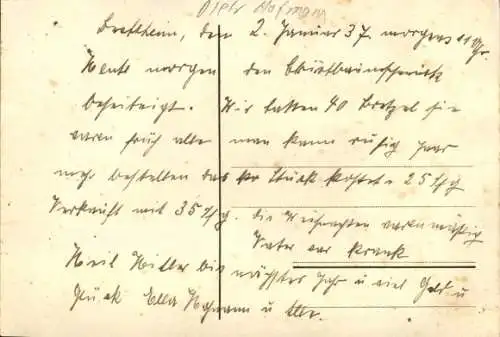 Dieter Hofmann
Brettheim, den 2. Januar 37. morgens 11 Uhr.
Heute morgen den Christbaumschmuck
beseitigt. Wir hatten 40 Bretzel sie
waren früh alle man kann ruhig paar
mehr bestellen das Stück kostet 25 Pfg
Verkauft mit 35 Pfg. die Weihnachten waren mäßig
Vater war krank
Heil Hitler bis nächstes Jahr u viel Geld u
Glück Ella Hofmann u Alle.